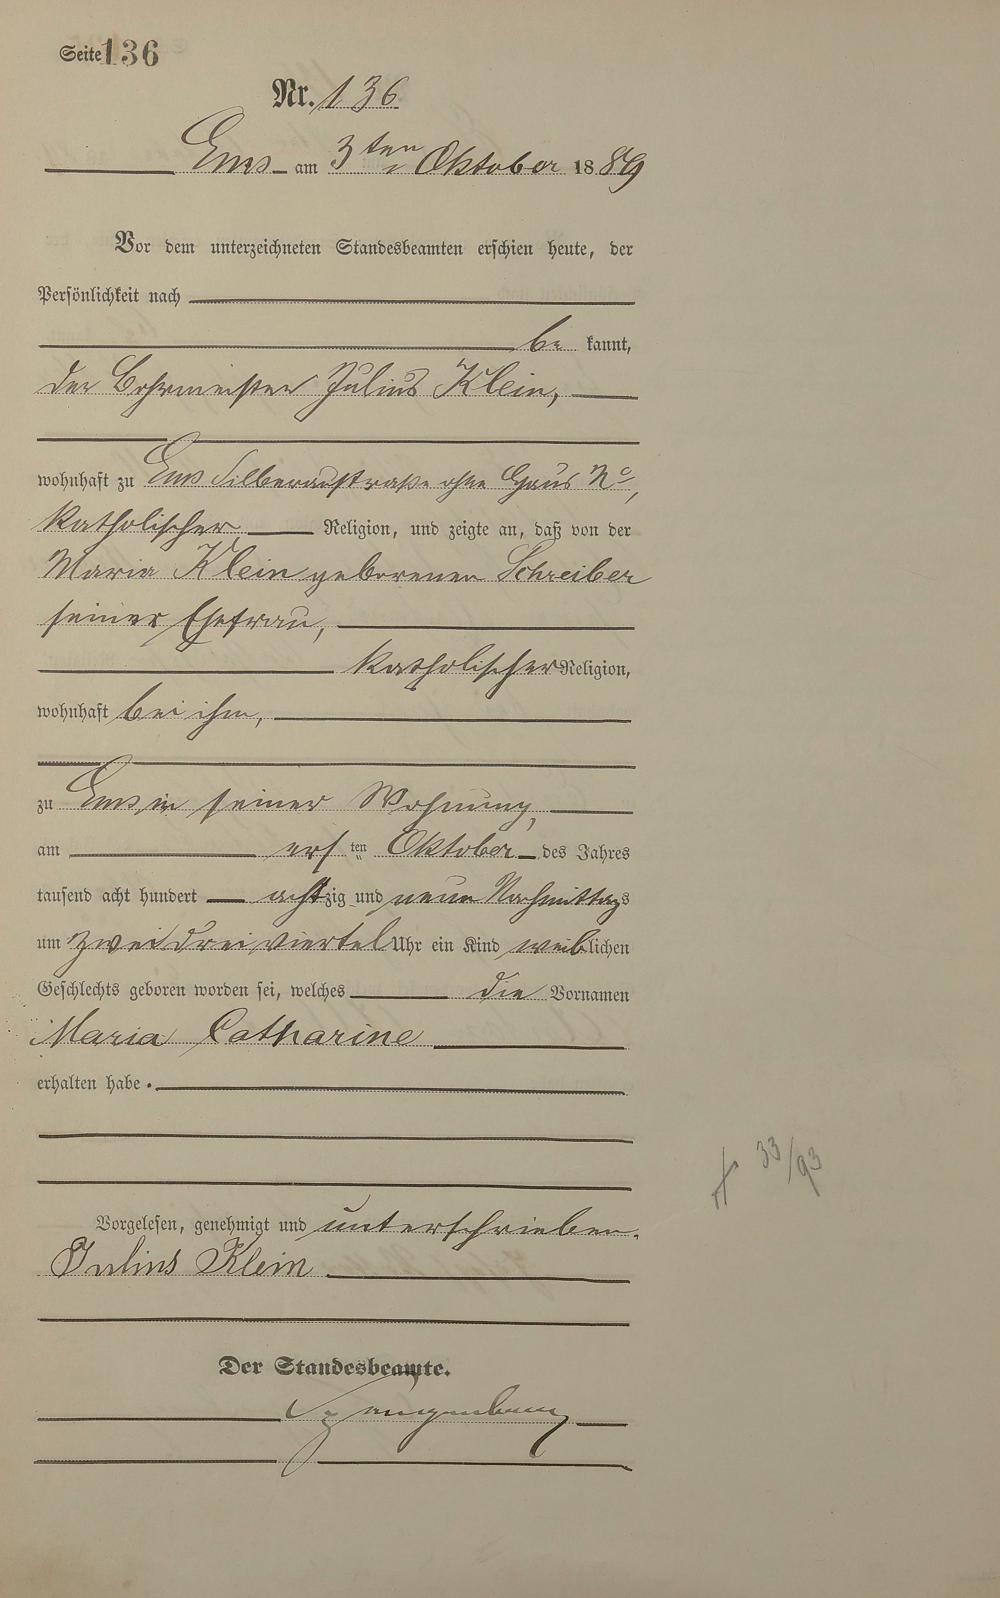 Seite 136
Nr. 136
Ems am 3ten Oktober 1889
Vor dem unterzeichneten Standesbeamten erschien heute, der
Persönlichkeit nach
be kannt,
der Bohrmeister Julius Klein,
wohnhaft zu Ems Silberaustraße ohne Haus No,
katholischer Religion, und zeigte an, daß von der
Maria Klein geborenen Schreiber
seiner Ehefrau,
katholischer Religion,
wohnhaft bei ihm,
zu Ems in seiner Wohnung,
am ersten Oktober des Jahres
tausend acht hundert achtzig und neun Nachmittags
um zwei drei viertel Uhr ein Kind weiblichen
Geschlechts geboren worden sei, welches die Vornamen
Maria Catharine
erhalten habe.
33/93
Vorgelesen, genehmigt und unterschrieben.
Julius Klein
Der Standesbeamte.